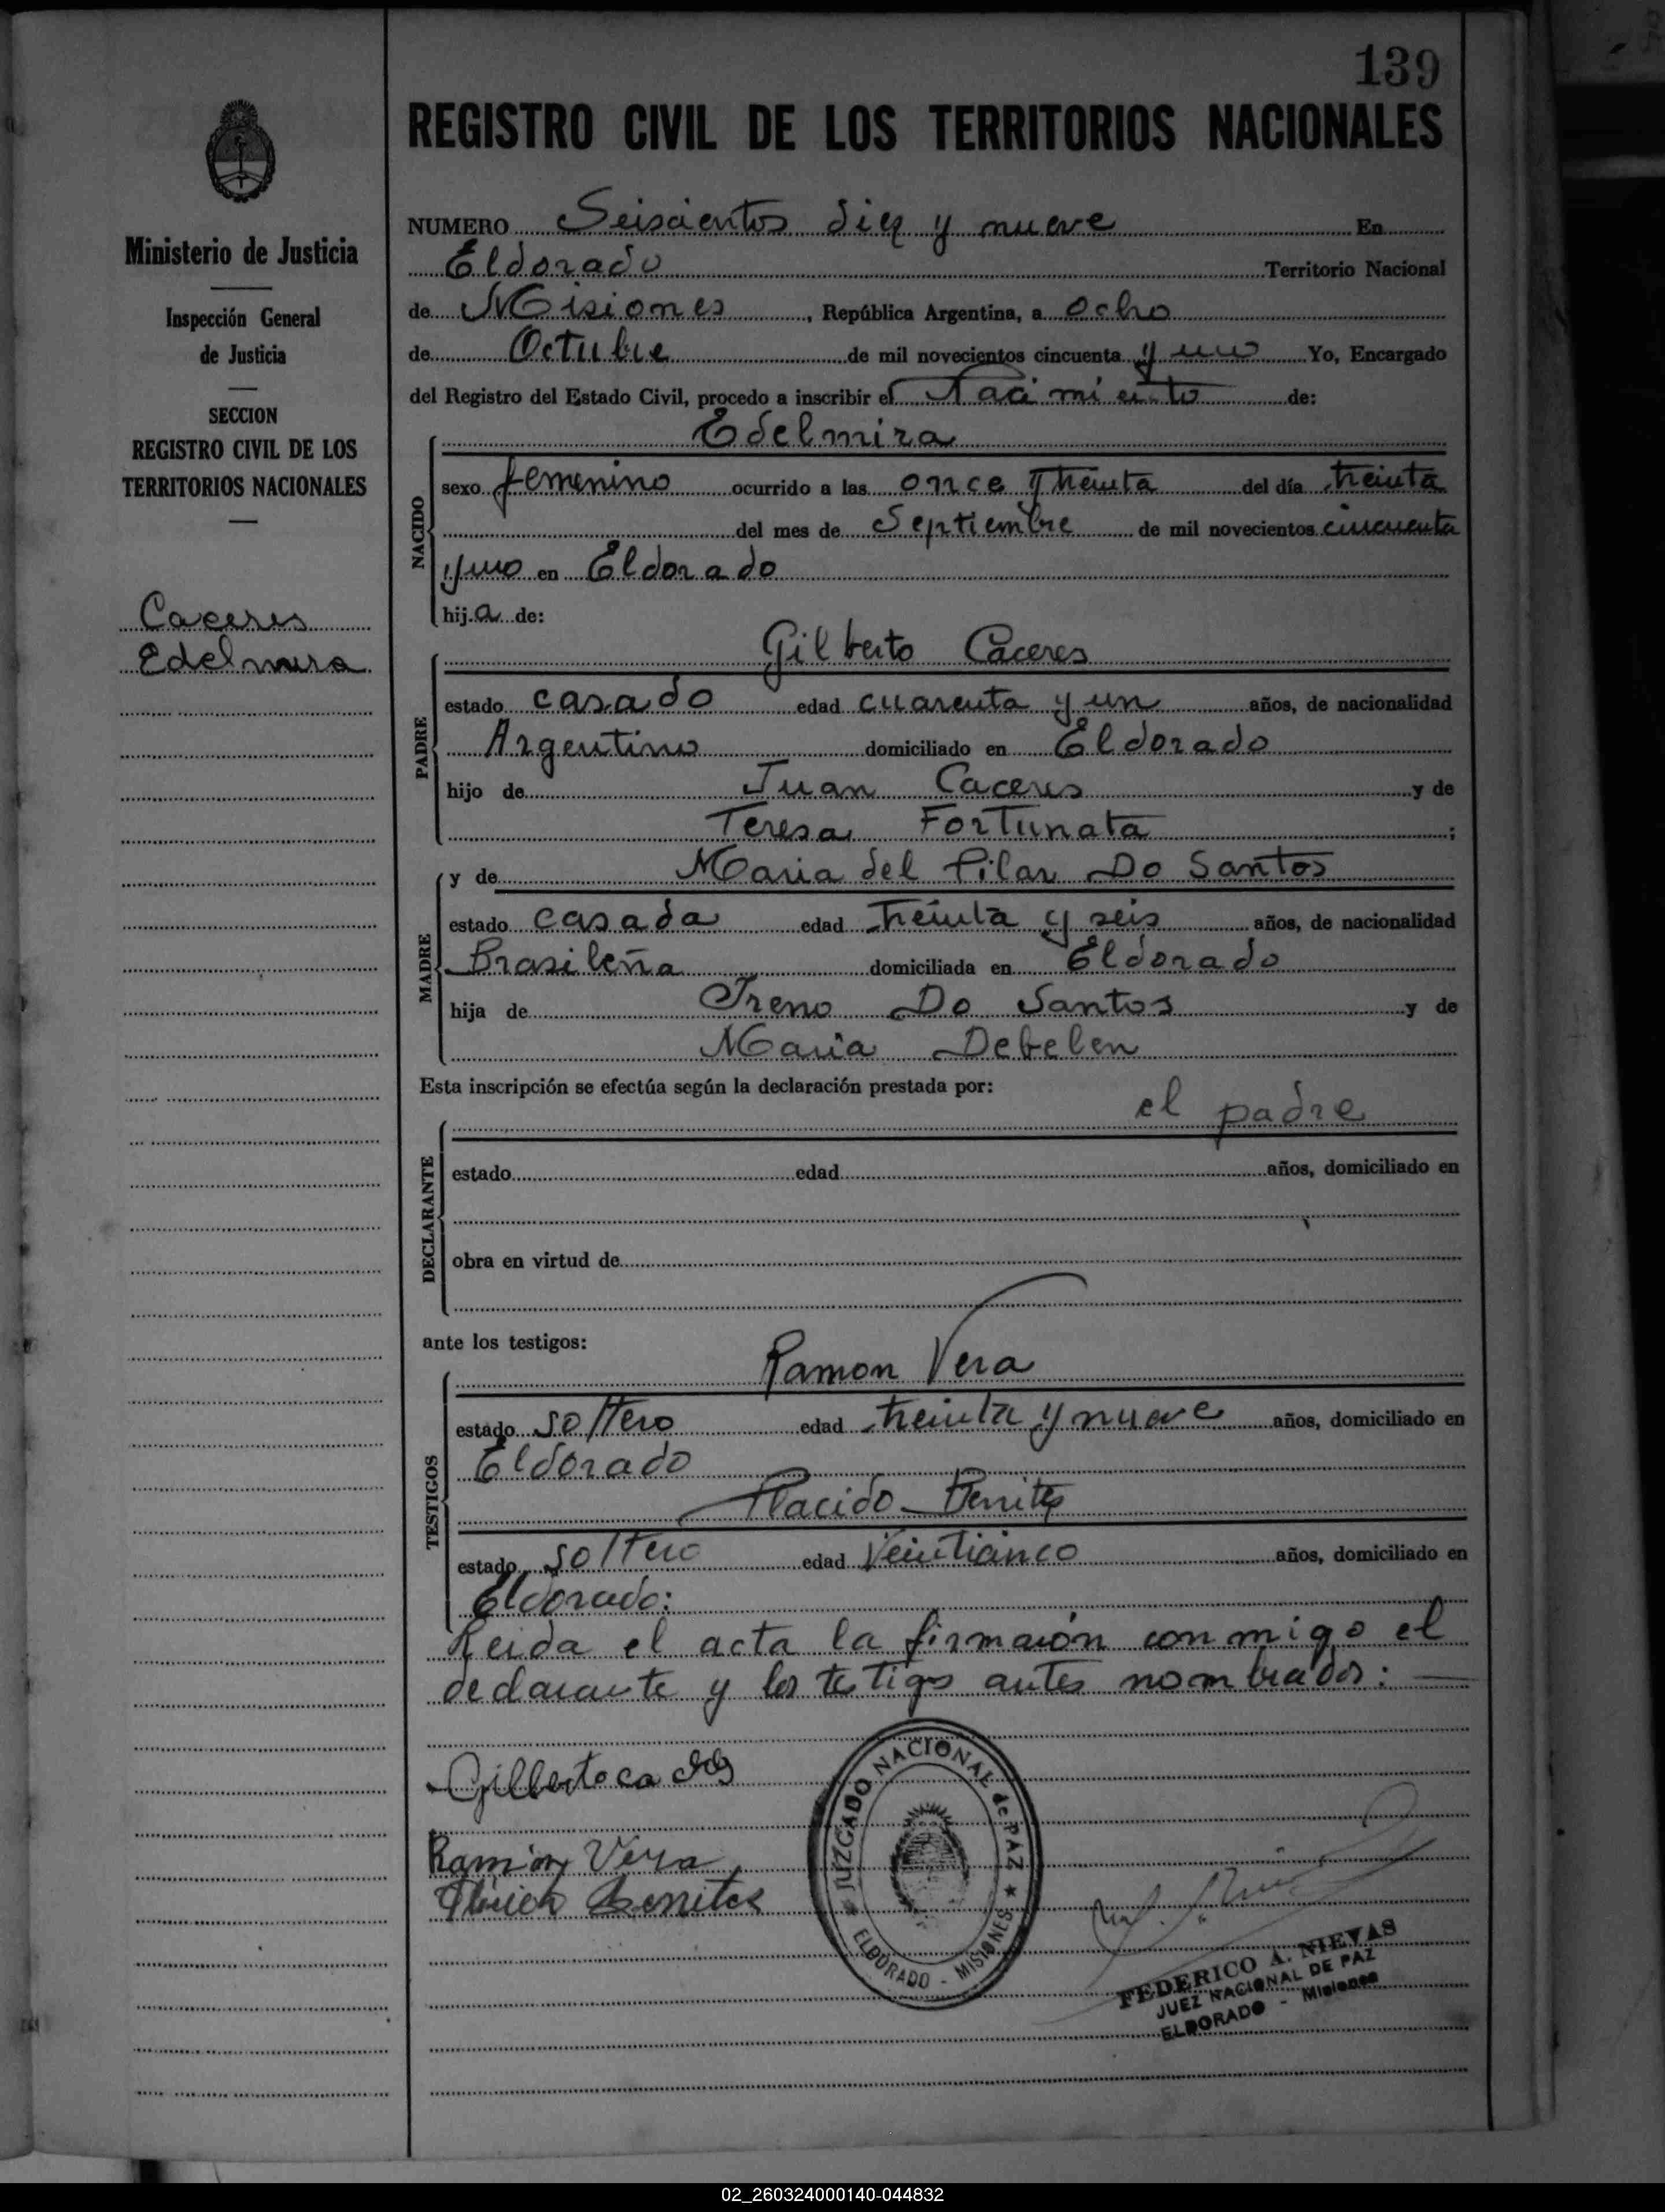 139
REGISTRO CIVIL DE LOS TERRITORIOS NACIONALES
Ministerio de Justicia
Inspección General
de Justicia
SECCION
REGISTRO CIVIL DE LOS
TERRITORIOS NACIONALES
Caceres
Edelmira
NUMERO Seiscientos diez y nueve En
Eldorado Territorio Nacional
de Misiones, República Argentina, a ocho
de Octubre de mil novecientos cincuenta y uno Yo, Encargado
del Registro del Estado Civil, procedo a inscribir el Nacimiento de:
NACIDO
Edelmira
sexo femenino ocurrido a las once y treinta del día treinta
del mes de Septiembre de mil novecientos cincuenta
y uno en Eldorado
hija de:
PADRE
Gilberto Caceres
estado casado edad cuarenta y un años, de nacionalidad
Argentino domiciliado en Eldorado
hijo de Juan Caceres y de
Teresa Fortunata ;
MADRE
y de Maria del Pilar Do Santos
estado casada edad treinta y seis años, de nacionalidad
Brasileña domiciliada en Eldorado
hija de Ireno Do Santos y de
Maria Debelen
Esta inscripción se efectúa según la declaración prestada por:
DECLARANTE
el padre
estado edad años, domiciliado en
obra en virtud de
ante los testigos:
TESTIGOS
Ramon Vera
estado soltero edad treinta y nueve años, domiciliado en
Eldorado
Placido Benites
estado soltero edad Veinticinco años, domiciliado en
Eldorado:
Leida el acta la firmaron conmigo el
declarante y los testigos antes nombrados:
Gilberto
Ramón Vera
Benites
JUZGADO NACIONAL de PAZ
ELDORADO - MISIONES
FEDERICO A. NIEVAS
JUEZ NACIONAL DE PAZ
ELDORADO - Misiones
02_260324000140-044832